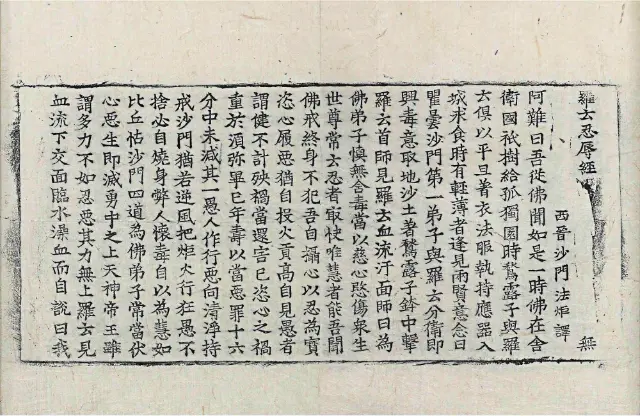 羅云忍辱經
西晉沙門法炬譯 無
阿難曰吾從佛聞如是一時佛在舍
衛國祇樹給孤獨園時鶖露子與羅
云俱以平旦著衣法服執持應器入
城求食時有輕薄者逢見兩賢意念曰
瞿曇沙門第一弟子與羅云分衛即
興毒意取地沙土著鶖露子鉢中擊
羅云首師見羅云血流汙面師曰為
佛弟子慎無含毒當以慈心愍傷衆生
世尊常云忍者最快唯慧者能吾聞
佛戒終身不犯吾自攝心以忍為寶
恣心履惡猶自投火貢高自見愚者
謂健不計殃禍當還害已恣心之禍
重於湏弥畢已年壽以當惡罪十六
分中未減其一愚人作行惡向清淨持
戒沙門猶若逆風把炬火行狂愚不
捨必自燒身弊人懷毒自以為慧如
比丘怙沙門四道為佛弟子常當伏
心惡生即滅勇中之上天神帝王雖
謂多力不如忍惡其力無上羅云見
血流下交面臨水澡血而自說曰我